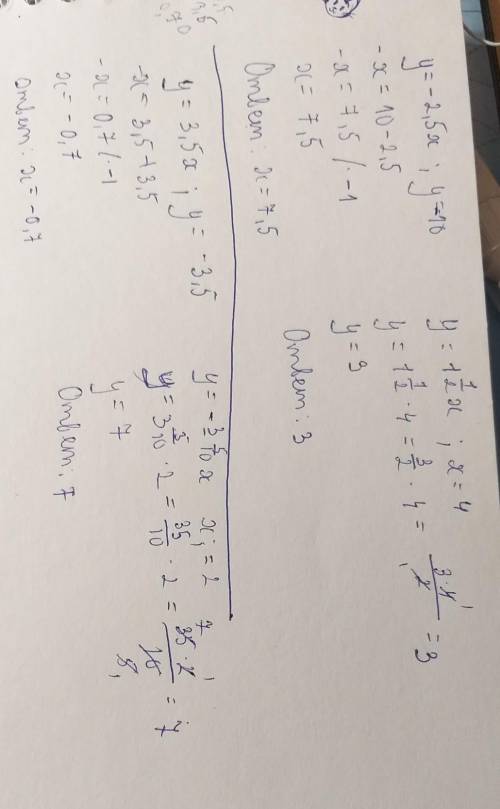 y = -2,5x ; y = 10
-x = 10 - 2,5
-x = 7,5 / · -1
x = 7,5
Ответ: x = 7,5
y = 1 1/2 x ; x = 4
y = 1 1/2 · 4 = 3/2 · 4 = 3·4/2 = 3
y = 3
Ответ: 3
y = 3,5x ; y = -3,5
-x = 3,5 + 3,5
-x = 0,7 / · -1
x = -0,7
Ответ: x = -0,7
y = -3 5/10 x ; x = 2
y = 3 5/10 · 2 = 35/10 · 2 = 35·2/10 = 7
y = 7
Ответ: 7